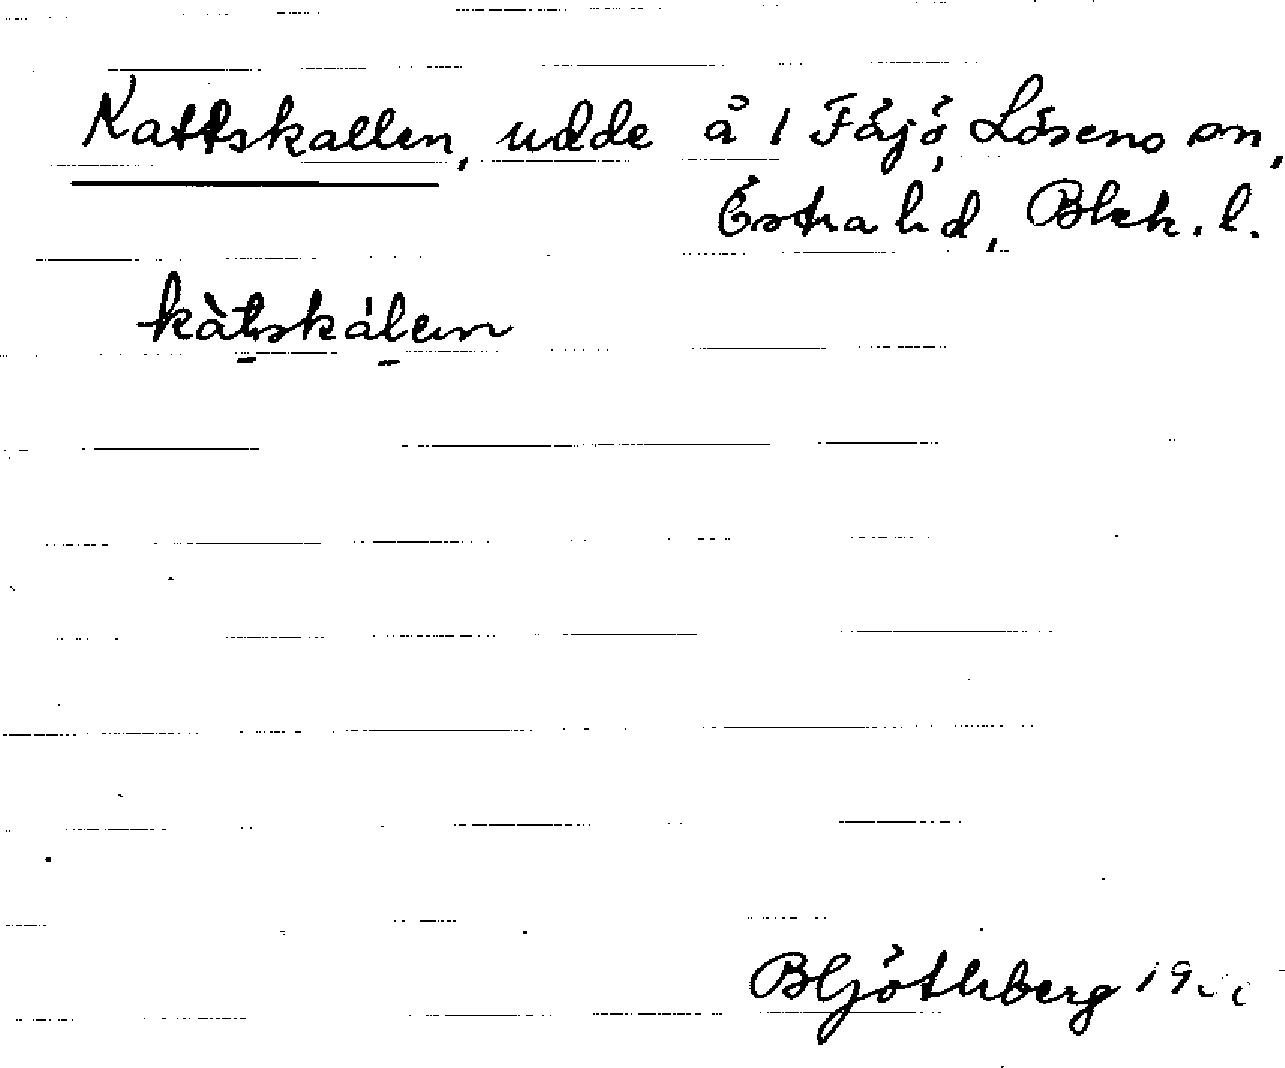 Kattskallen, udde å 1 Fäjö, Lösens sn,
Östra hd, Blek. l.
kàtskálen
B Götlrberg 19